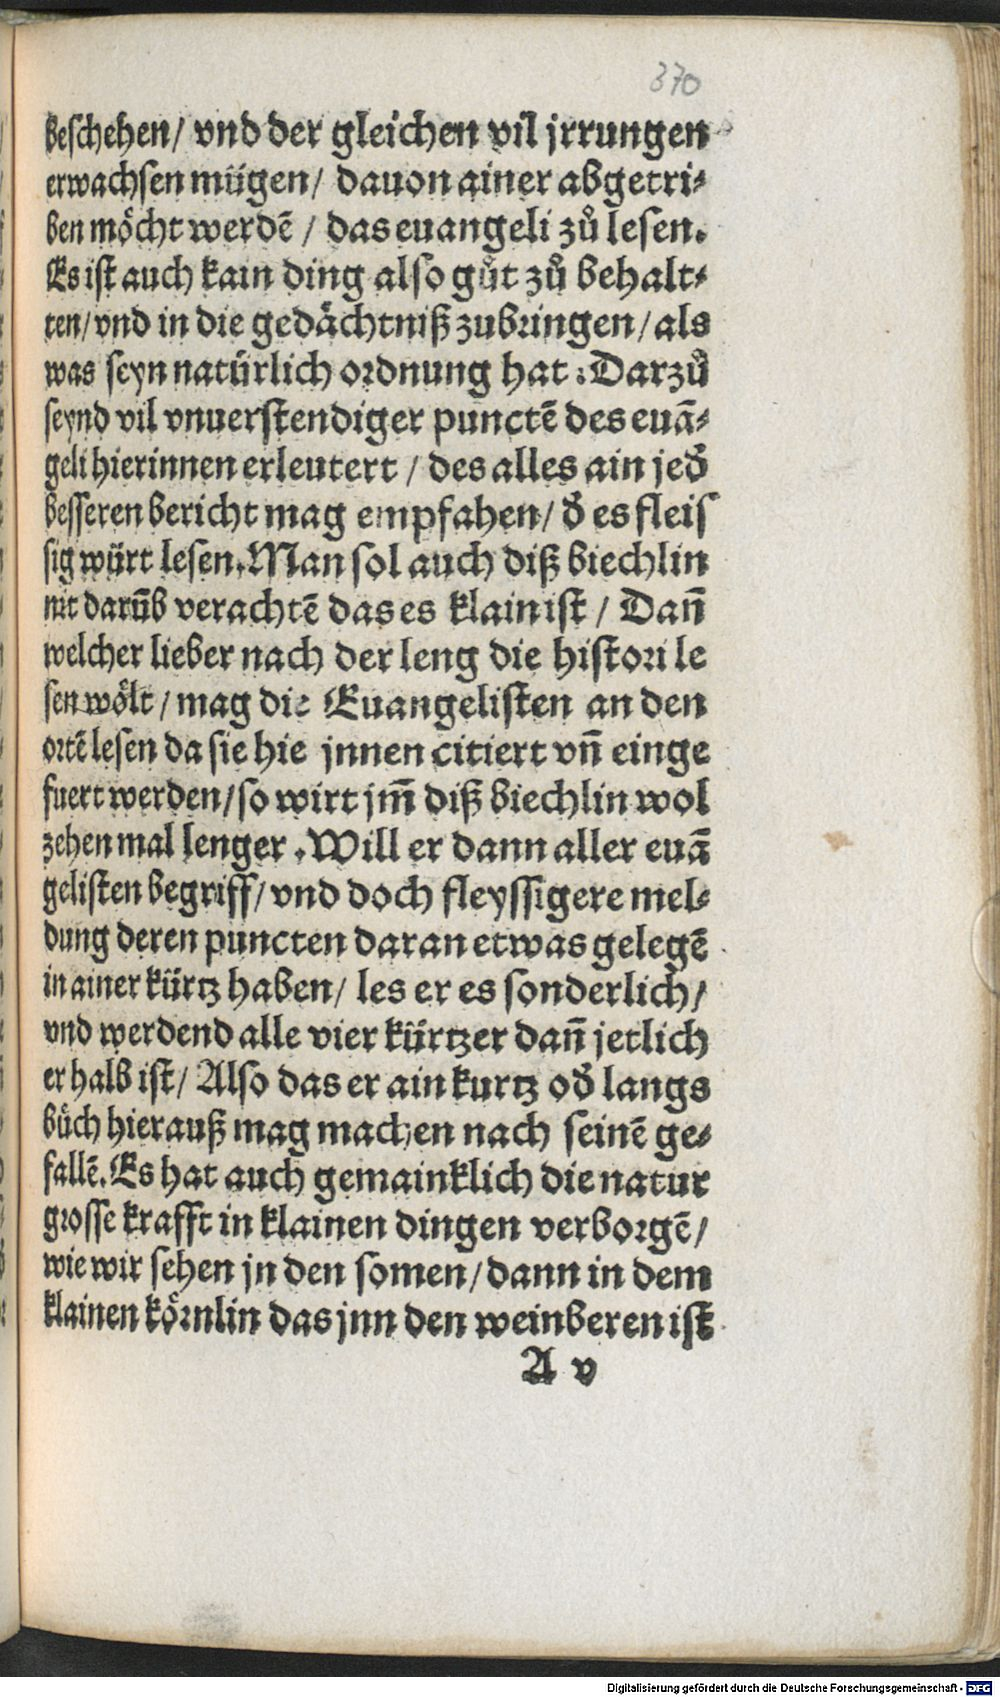 370
beschehen/ vnd der gleichen vil jrrungen
erwachsen mügen/ dauon ainer abgetri⸗
ben möcht werdē / das euangeli zů lesen.
Es ist auch kain ding also gůt zů behalt⸗
ten/ vnd in die gedächtniß zubringen/ als
was seyn natürlich ordnung hat : Darzů
seynd vil vnuerstendiger punctē des euā⸗
geli hierinnen erleutert / des alles ain jed̄
besseren bericht mag empfahen/ d̄ es fleis
sig würt lesen. Man sol auch diß biechlin
nit darūb verachtē das es klain ist / Dañ
welcher lieber nach der leng die histori le
sen wölt / mag die Euangelisten an den
ortē lesen da sie hie jnnen citiert vñ einge
fuert werden/ so wirt jm̄ diß biechlin wol
zehen mal lenger . Will er dann aller euā
gelisten begriff/ vnd doch fleyssigere mel⸗
dung deren puncten daran etwas gelegē
in ainer kürtz haben/ les er es sonderlich/
vnd werdend alle vier kürtzer dañ jetlich
er halb ist/ Also das er ain kurtz od̄ langs
bůch hierauß mag machen nach seinē ge⸗
fallē. Es hat auch gemainklich die natur
grosse krafft in klainen dingen verborgē/
wie wir sehen jn den somen/ dann in dem
klainen körnlin das jnn den weinberen ist
A v
Digitalisierung gefördert durch die Deutsche Forschungsgemeinschaft - DFG